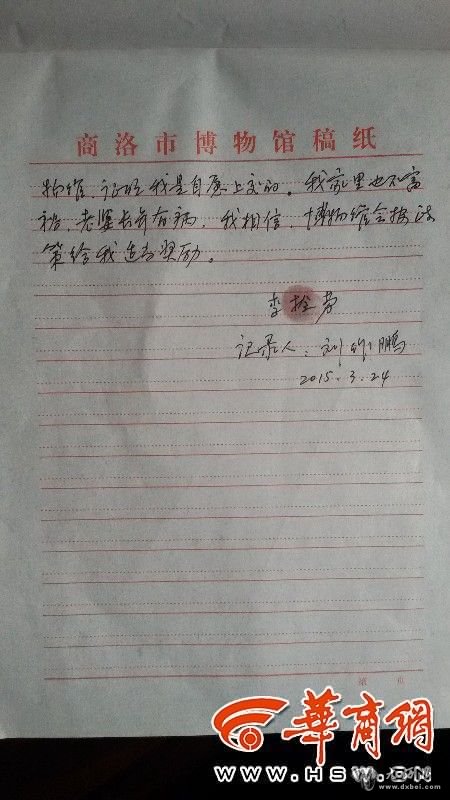 商洛市博物馆稿纸
物馆,证明我是自愿上交的。我家里也不富
裕,老婆长年有病,我相信,博物馆会按政
策给我适当奖励。
李拴劳
记录人:刘作鹏
2015.3.24
第 页
华商网
WWW.HSW.CN
www.dxbei.com